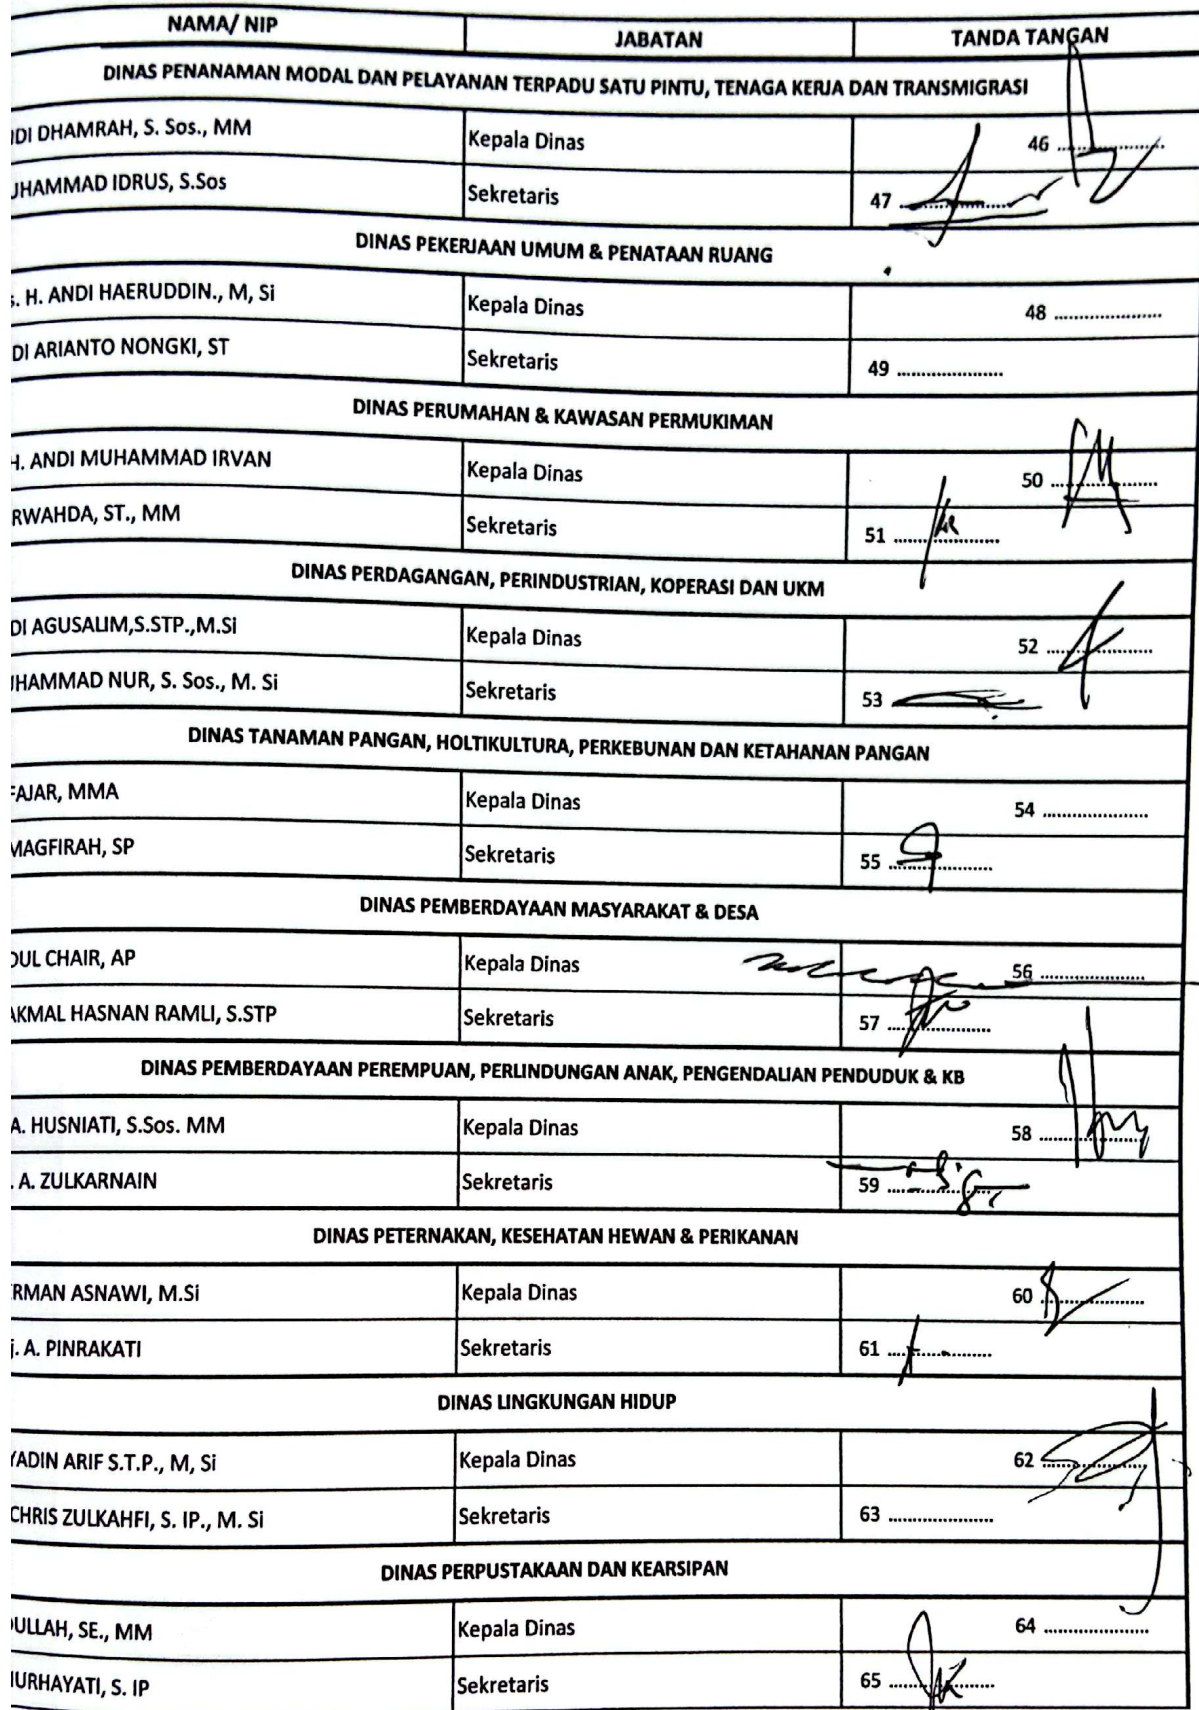 NAMA/ NIP JABATAN TANDA TANGAN
DINAS PENANAMAN MODAL DAN PELAYANAN TERPADU SATU PINTU, TENAGA KERJA DAN TRANSMIGRASI
DI DHAMRAH, S. Sos., MM Kepala Dinas 46 ....................
JHAMMAD IDRUS, S.Sos Sekretaris 47 ....................
DINAS PEKERJAAN UMUM & PENATAAN RUANG
. H. ANDI HAERUDDIN., M, Si Kepala Dinas 48 ....................
DI ARIANTO NONGKI, ST Sekretaris 49 ....................
DINAS PERUMAHAN & KAWASAN PERMUKIMAN
H. ANDI MUHAMMAD IRVAN Kepala Dinas 50 ....................
RWAHDA, ST., MM Sekretaris 51 ....................
DINAS PERDAGANGAN, PERINDUSTRIAN, KOPERASI DAN UKM
DI AGUSALIM,S.STP.,M.Si Kepala Dinas 52 ....................
HAMMAD NUR, S. Sos., M. Si Sekretaris 53
DINAS TANAMAN PANGAN, HOLTIKULTURA, PERKEBUNAN DAN KETAHANAN PANGAN
FAJAR, MMA Kepala Dinas 54 ....................
MAGFIRAH, SP Sekretaris 55 ....................
DINAS PEMBERDAYAAN MASYARAKAT & DESA
DUL CHAIR, AP Kepala Dinas 56 ....................
AKMAL HASNAN RAMLI, S.STP Sekretaris 57 ....................
DINAS PEMBERDAYAAN PEREMPUAN, PERLINDUNGAN ANAK, PENGENDALIAN PENDUDUK & KB
A. HUSNIATI, S.Sos. MM Kepala Dinas 58 ....................
. A. ZULKARNAIN Sekretaris 59 ....................
DINAS PETERNAKAN, KESEHATAN HEWAN & PERIKANAN
RMAN ASNAWI, M.Si Kepala Dinas 60 ....................
. A. PINRAKATI Sekretaris 61 ....................
DINAS LINGKUNGAN HIDUP
YADIN ARIF S.T.P., M, Si Kepala Dinas 62 ....................
CHRIS ZULKAHFI, S. IP., M. Si Sekretaris 63 ....................
DINAS PERPUSTAKAAN DAN KEARSIPAN
ULLAH, SE., MM Kepala Dinas 64 ....................
URHAYATI, S. IP Sekretaris 65 ....................